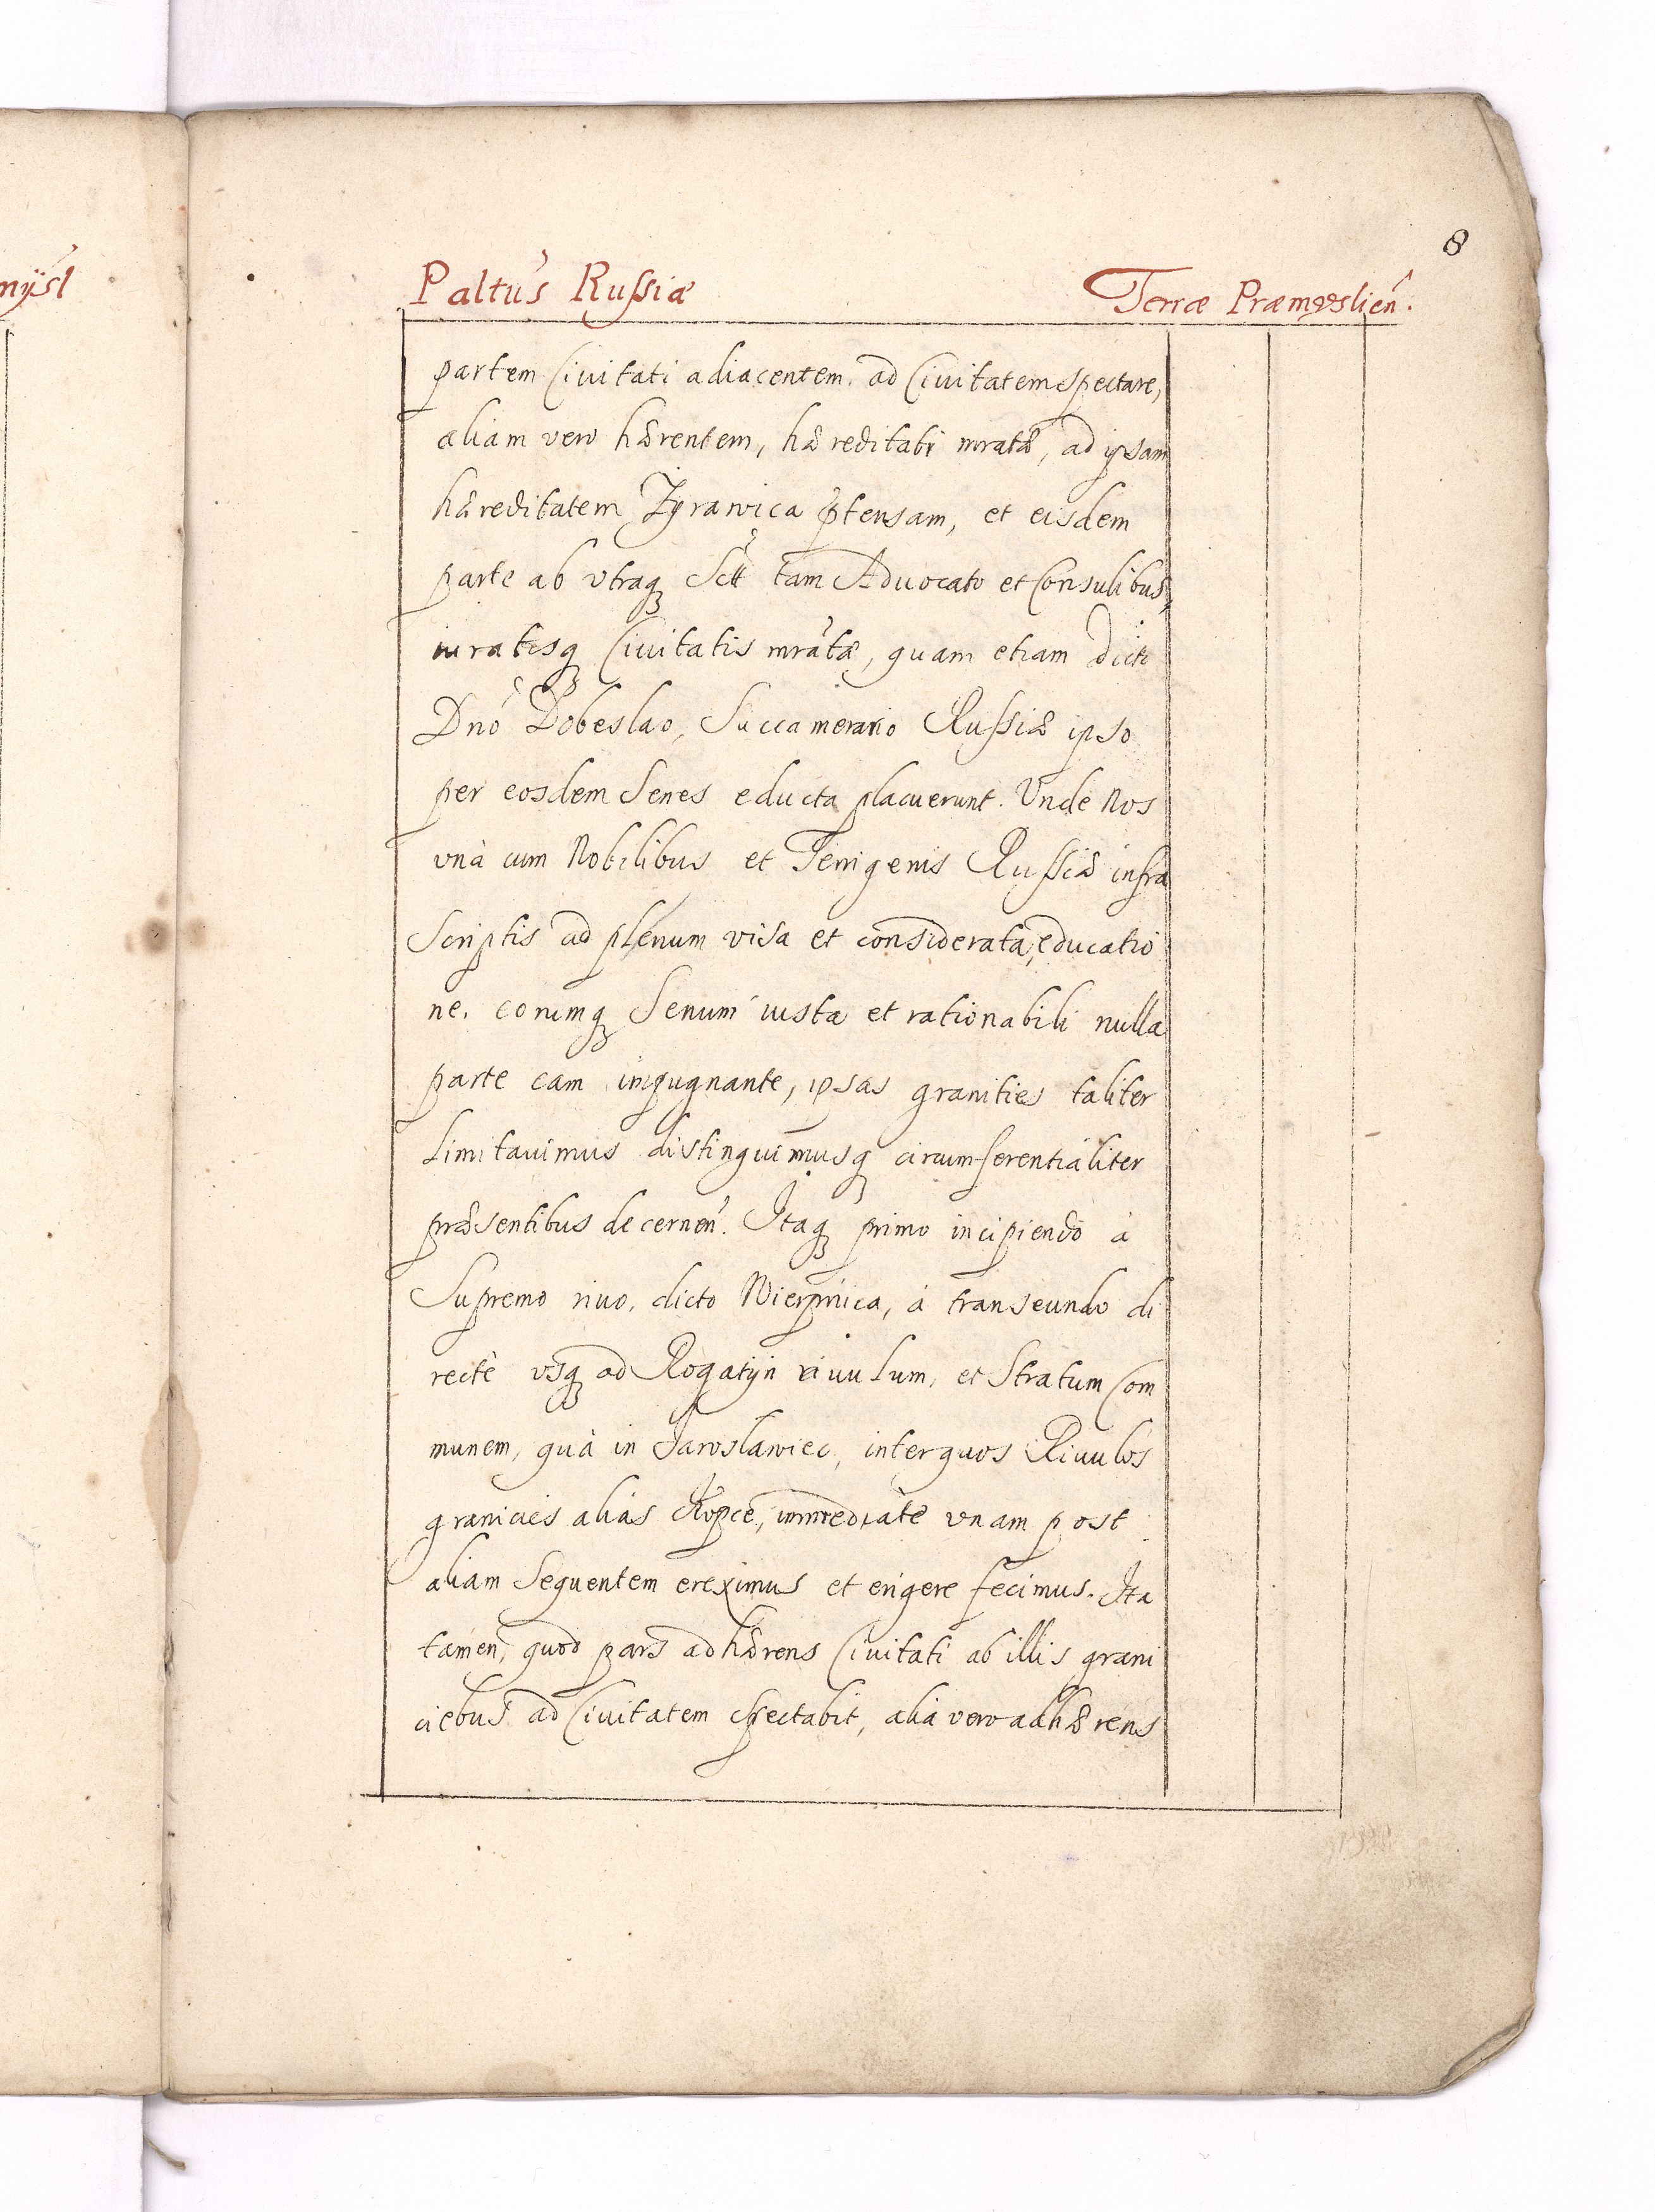 8
mÿsl
Paltūs Russiæ Terræ Præmysliēn.
partem Ciuitati adiacentem. ad Ciuitatem spectare,
aliam vero hærentem, hæreditati mratæ, ad ipsam
hæreditatem Zyrawica ptensam, et eisdem
parte ab vtraq Sctt tam Aduocato et Consulibus,
iuratisq Ciuitatis mrãtæ, quam etiam dicto
Dnō Dobeslao, Succamerario Russiæ ipso
per eosdem Senes educta placuerunt. Vnde Nos
vnà cum Nobilibus et Terrigenis Russiæ infra
Scriptis ad plenum visa et considerata, educatio
ne, eorumq Senum iusta et rationabili nulla
parte eam impugnante, ipsas granities taliter
Limitauimus distinguimusq circumferentialiter
præsentibus decernen. Itaq primo incipiendo à
Supremo riuo, dicto Wierpnica, à transeundo di
rectè vsq ad Rogatÿn riuulum, et Stratum Com
munem, quà in Jaroslawiec, inter quos Riuulos
granicies aliàs Kopce, immediatè vnam post
aliam Sequentem ereximus et erigere fecimus. Ita
tamen, quod pars adhærens Ciuitati ab illis grani
ciebus ad Ciuitatem spectabit, alia vero adhærens